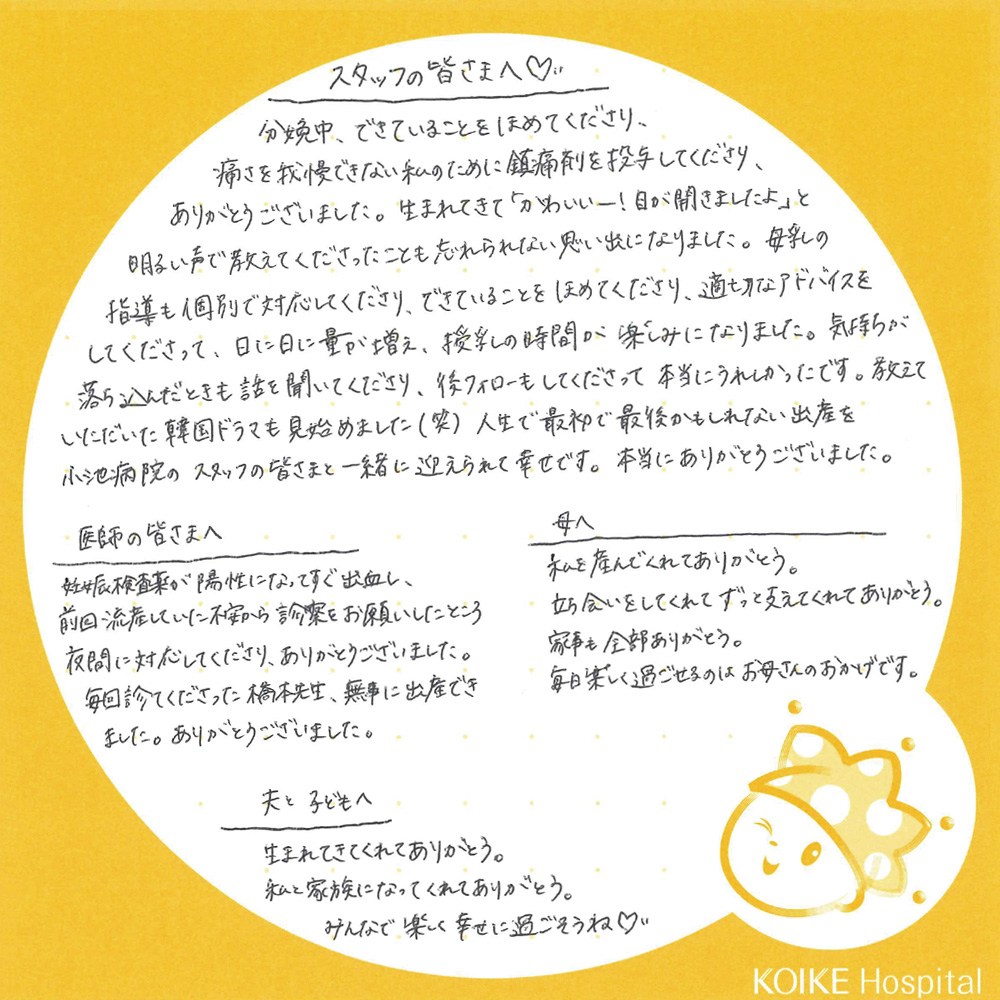 スタッフの皆さまへ♡
分娩中、できていることをほめてくださり、
痛さを我慢できない私のために鎮痛剤を投与してくださり、
ありがとうございました。生まれてきて「かわいいー!目が開きましたよ」と
明るい声で教えてくださったことも忘れられない思い出になりました。母乳の
指導も個別で対応してくださり、できていることをほめてくださり、適切なアドバイスを
してくださって、日に日に量が増え、授乳の時間が楽しみになりました。気持ちが
落ち込んだときも話を聞いてくださり、後フォローもしてくださって本当にうれしかったです。教えて
いただいた韓国ドラマも見始めました(笑)人生で最初で最後かもしれない出産を
小池病院のスタッフの皆さまと一緒に迎えられて幸せです。本当にありがとうございました。
医師の皆さまへ
妊娠検査薬が陽性になってすぐ出血し、
前回流産していた不安から診察をお願いしたところ
夜間に対応してくださり、ありがとうございました。
毎回診てくださった橋本先生、無事に出産でき
ました。ありがとうございました。
母へ
私を産んでくれてありがとう。
立ち会いをしてくれてずっと支えてくれてありがとう。
家事も全部ありがとう。
毎日楽しく過ごせるのはお母さんのおかげです。
夫と子どもへ
生まれてきてくれてありがとう。
私と家族になってくれてありがとう。
みんなで楽しく幸せに過ごそうね♡
KOIKE Hospital